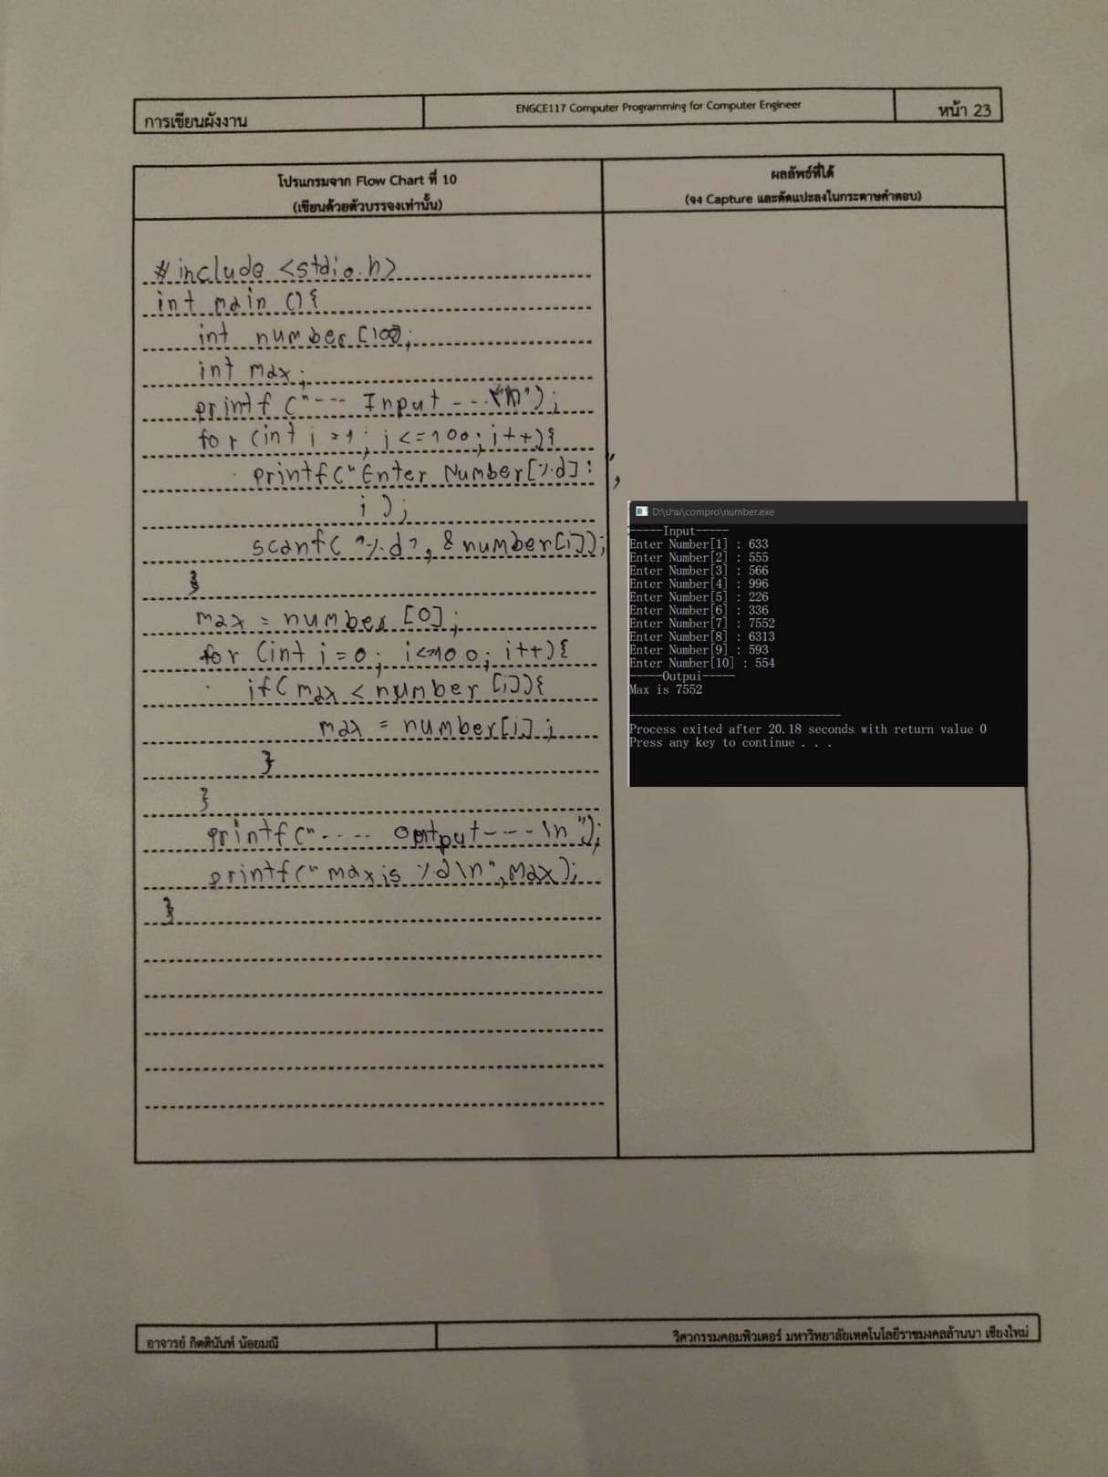 การเขียนผังงาน
ENGCE117 Computer Programming for Computer Engineer
หน้า 23
โปรแกรมจาก Flow Chart ที่ 10
(เขียนด้วยตัวบรรจงเท่านั้น)
ผลลัพธ์ที่ได้
(จง Capture และตัดแปะลงในกระดาษคำตอบ)
#include <stdio.h>
int main (){
int number [100];
int max;
printf ("--- Input ---\n");
for (int i = 1; i <= 100; i++){
printf("Enter Number[%d]: ",
i );
scanf( "%d", &number[i]);
}
max = number [0];
for (int i = 0; i<=100; i++){
if( max < number [i]){
max = number[i];
}
}
printf("---- output----\n");
printf("max is %d\n",Max);
}
D:\thai\compro\number.exe
-----Input-----
Enter Number[1] : 633
Enter Number[2] : 555
Enter Number[3] : 566
Enter Number[4] : 996
Enter Number[5] : 226
Enter Number[6] : 336
Enter Number[7] : 7552
Enter Number[8] : 6313
Enter Number[9] : 593
Enter Number[10] : 554
-----Outpui-----
Max is 7552
--------------------------------
Process exited after 20.18 seconds with return value 0
Press any key to continue . . .
อาจารย์ กิตตินันท์ น้อยมณี
วิศวกรรมคอมพิวเตอร์ มหาวิทยาลัยเทคโนโลยีราชมงคลล้านนา เชียงใหม่